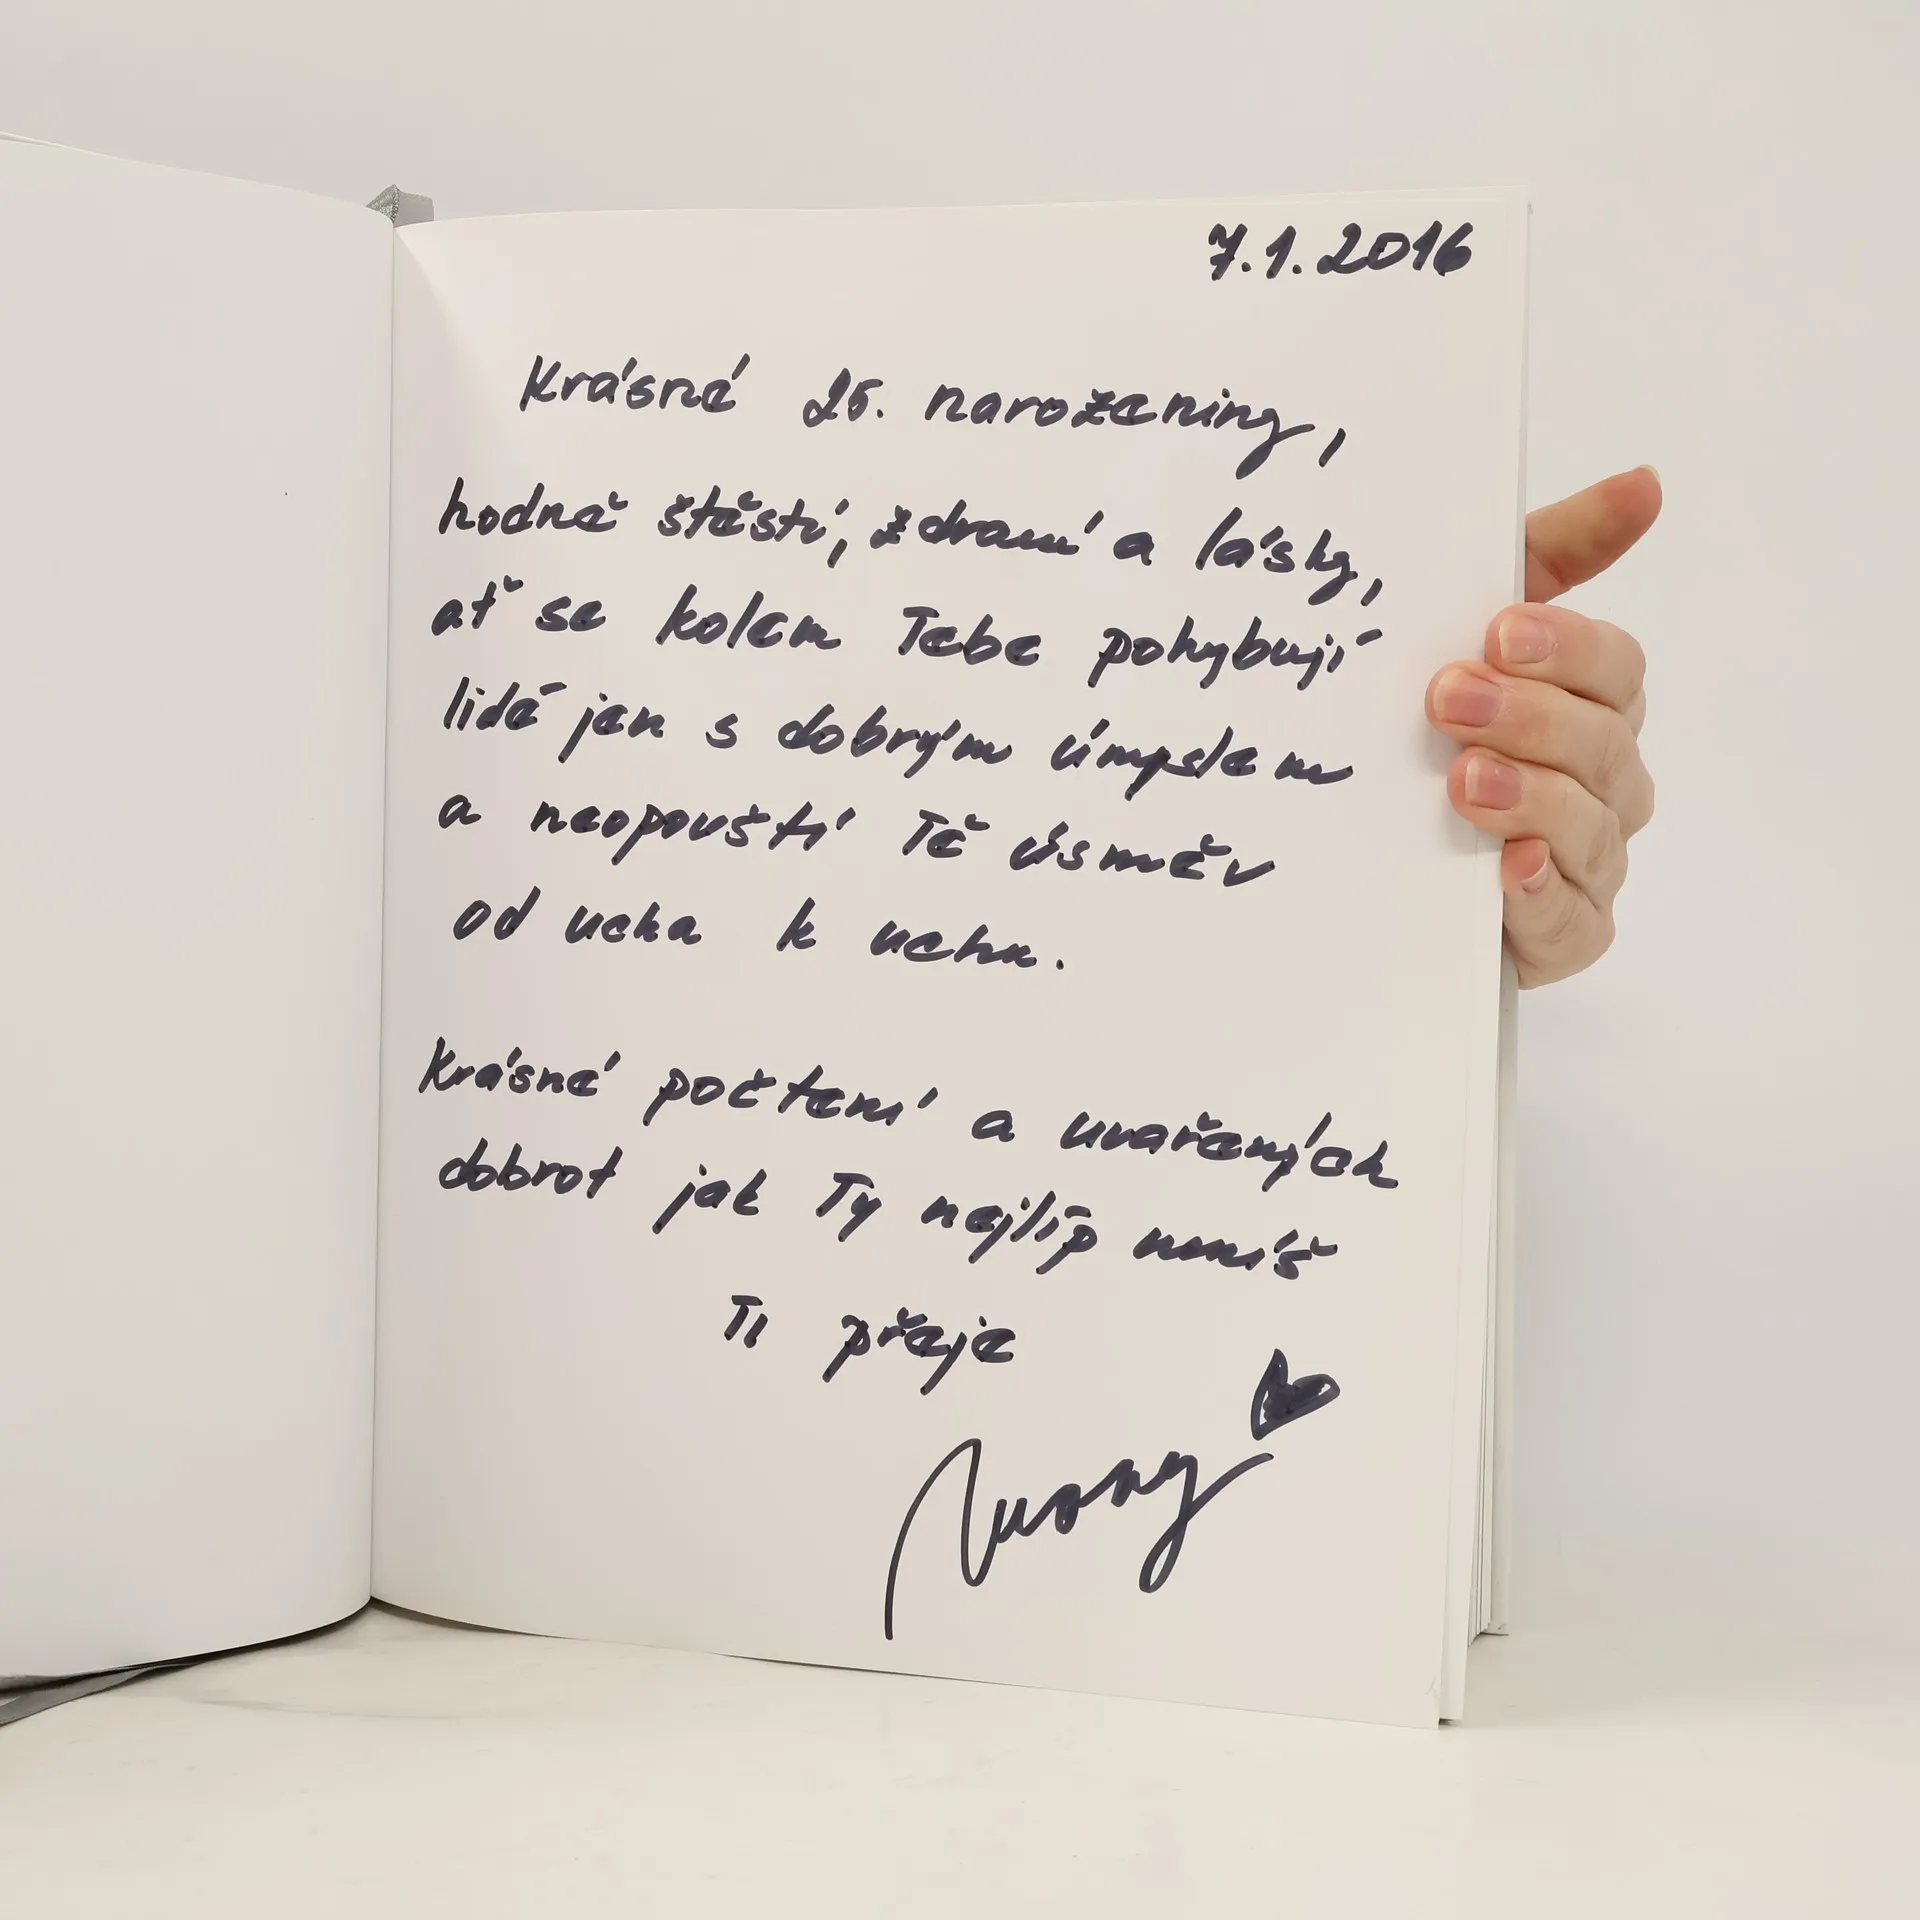 7.1.2016
Krásné 25. narozeniny,
hodně štěstí, zdraví a lásky,
ať se kolem Tebe pohybují
lidé jen s dobrým úmyslem
a neopouští Tě úsměv
od ucha k uchu.
Krásné počtení a uvařených
dobrot jak Ty nejlíp umíš
Ti přeje